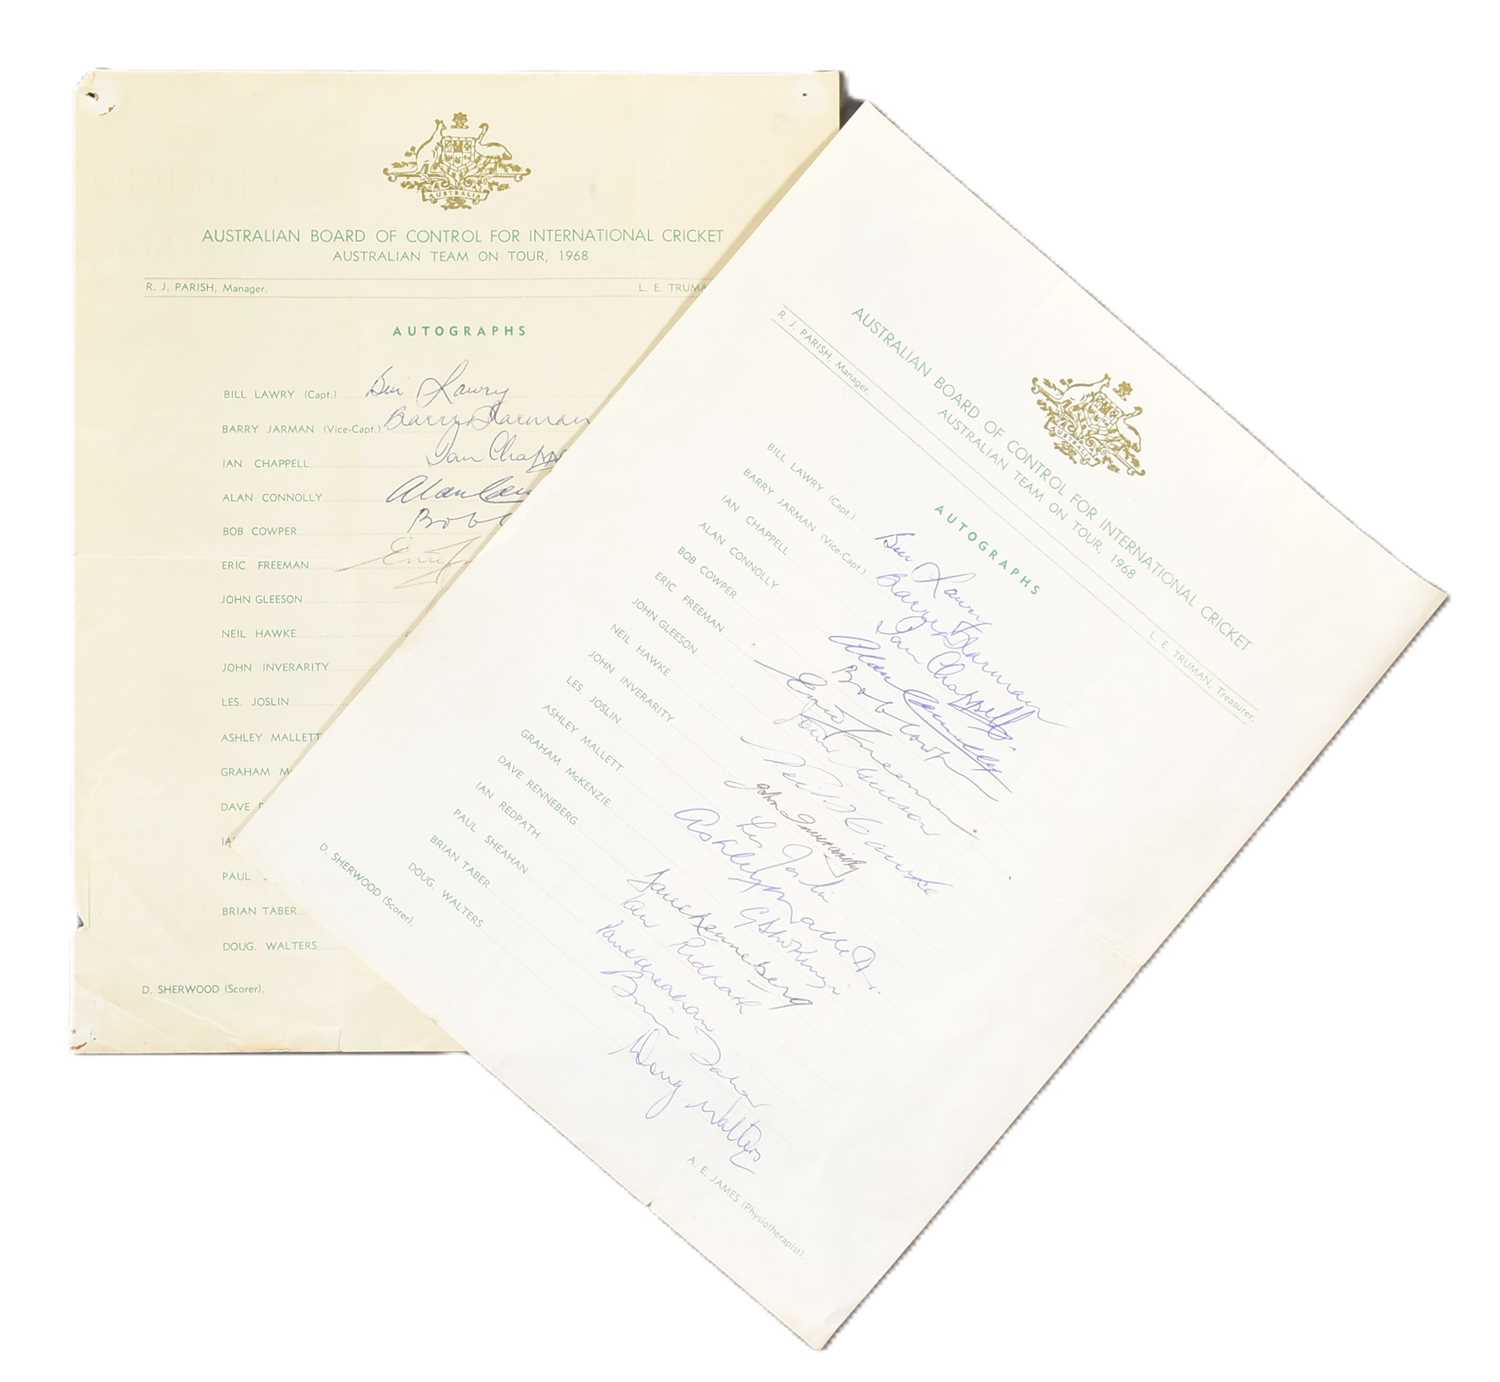 AUSTRALIA
AUSTRALIAN BOARD OF CONTROL FOR INTERNATIONAL CRICKET
AUSTRALIAN TEAM ON TOUR, 1968
R. J. PARISH, Manager. L. E. TRUMA
AUTOGRAPHS
BILL LAWRY (Capt.) Bill Lawry
BARRY JARMAN (Vice-Capt.) Barry Jarman
IAN CHAPPELL Ian Chapp
ALAN CONNOLLY Alan Con
BOB COWPER Bob C
ERIC FREEMAN Eric F
JOHN GLEESON
NEIL HAWKE
JOHN INVERARITY
LES. JOSLIN
ASHLEY MALLETT
GRAHAM M
DAVE R
IA
PAUL S
BRIAN TABER
DOUG. WALTERS
D. SHERWOOD (Scorer).
AUSTRALIA
AUSTRALIAN BOARD OF CONTROL FOR INTERNATIONAL CRICKET
AUSTRALIAN TEAM ON TOUR, 1968
R. J. PARISH, Manager. L. E. TRUMAN, Treasurer.
AUTOGRAPHS
BILL LAWRY (Capt.) Bill Lawry
BARRY JARMAN (Vice-Capt.) Barry Jarman
IAN CHAPPELL Ian Chappell
ALAN CONNOLLY Alan Connolly
BOB COWPER Bob Cowper
ERIC FREEMAN Eric Freeman
JOHN GLEESON John Gleeson
NEIL HAWKE Neil Hawke
JOHN INVERARITY John Inverarity
LES. JOSLIN Les Joslin
ASHLEY MALLETT Ashley Mallett
GRAHAM McKENZIE G McKenzie
DAVE RENNEBERG Dave Renneberg
IAN REDPATH Ian Redpath
PAUL SHEAHAN Paul Sheahan
BRIAN TABER Brian Taber
DOUG. WALTERS Doug Walters
D. SHERWOOD (Scorer). A. E. JAMES (Physiotherapist).